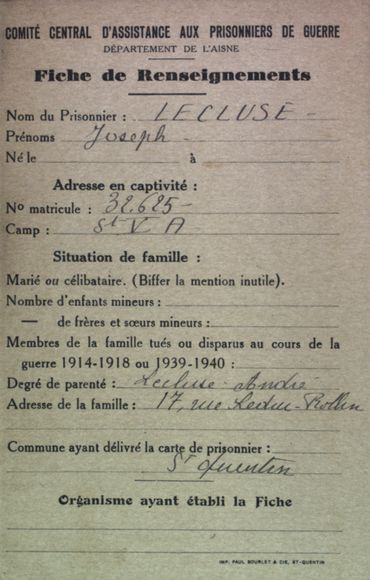 COMITÉ CENTRAL D'ASSISTANCE AUX PRISONNIERS DE GUERRE
DÉPARTEMENT DE L'AISNE
Fiche de Renseignements
Nom du Prisonnier : LECLUSE -
Prénoms Joseph -
Né le à
Adresse en captivité :
No matricule : 32.625 -
Camp : St V A
Situation de famille :
Marié ou célibataire. (Biffer la mention inutile).
Nombre d'enfants mineurs :
— de frères et sœurs mineurs :
Membres de la famille tués ou disparus au cours de la
guerre 1914-1918 ou 1939-1940 :
Degré de parenté : Lecluse André
Adresse de la famille : 17, rue Ledru-Rollin
Commune ayant délivré la carte de prisonnier :
St Quentin
Organisme ayant établi la Fiche
IMP. PAUL BOURLET & CIE, ST-QUENTIN